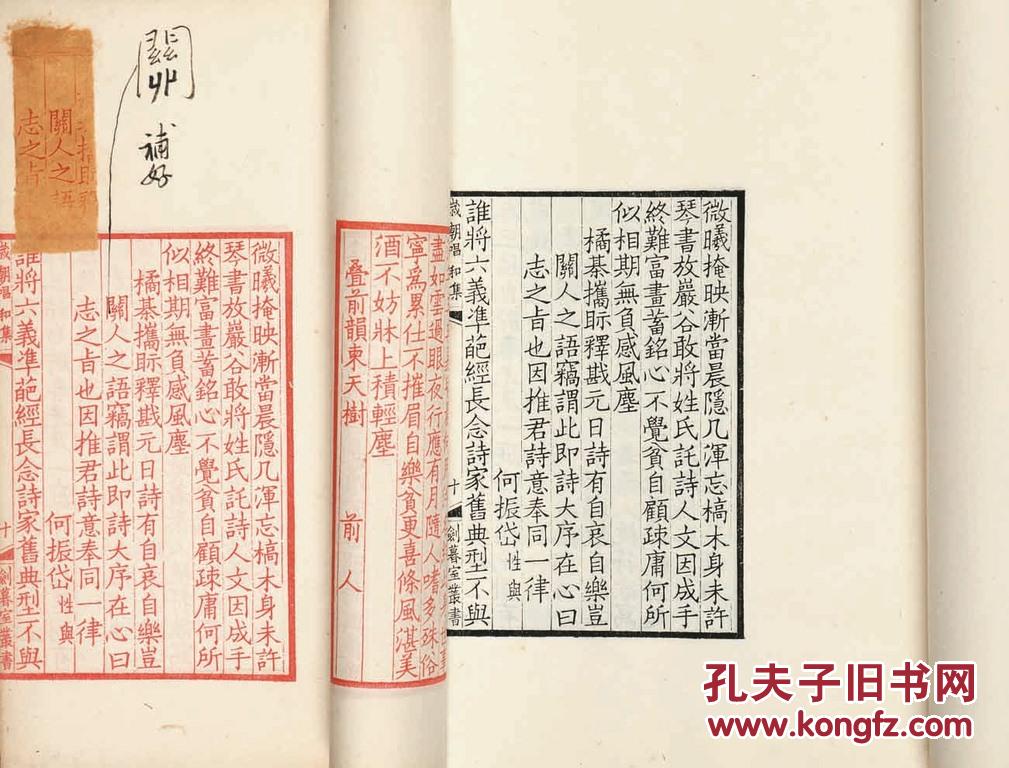 微曦掩映漸當晨隱几渾忘槁木身未許
琴書放嚴谷敢將姓氏託詩人文因成手
終難富畫蓄銘心不覺貧自顧疎庸何所
似相期無負感風塵
橘綦攜眎釋戡元日詩有自哀自樂豈
關人之語竊謂此即詩大序在心曰
志之旨也因推君詩意奉同一律
何振岱 性與
誰將六義準葩經長念詩家舊典型不與
歲朝唱和集
十
劍暮室叢書
盡如雲過眼夜行應有月隨人嗜多殊俗
寧爲累仕不摧眉自樂貧更喜條風湛美
酒不妨牀上積輕塵
叠前韻柬天樹
前人
關
補好
關人之語
志之旨
微曦掩映漸當晨隱几渾忘槁木身未許
琴書放嚴谷敢將姓氏託詩人文因成手
終難富畫蓄銘心不覺貧自顧疎庸何所
似相期無負感風塵
橘綦攜眎釋戡元日詩有自哀自樂豈
關人之語竊謂此即詩大序在心曰
志之旨也因推君詩意奉同一律
何振岱 性與
誰將六義準葩經長念詩家舊典型不與
歲朝唱和集
十
劍暮室叢書
孔夫子旧书网
www.kongfz.com